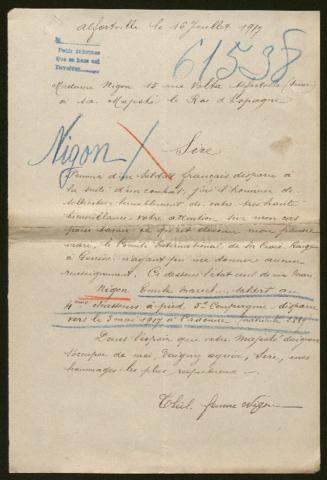 Alfortville le 16 Juillet 1917
61538
Pedir informes
Que se hace así
Devolver
Madame Nigon 15 rue Volta Alfortville (Seine)
à sa Majesté le Roi d'Espagne
Nigon
Sire
Femme d'un soldat français disparu à
la suite d'un combat, j'ai l'honneur de
solliciter humblement de votre très haute
bienveillance votre attention sur mon cas
pour savoir ce qu'est devenu mon pauvre
mari, le Comité International de la Croix Rouge
à Genève n'ayant pu me donner aucun
renseignement. Ci dessous l'état civil de mon mari
Nigon Emile Marcel, soldat au
4ème Chasseurs à pied, 3e Compagnie disparu
vers le 5 mai 1917 à
Dans l'espoir que votre Majesté daignera
s'occuper de moi, daignez agréer, Sire, mes
hommages les plus respectueux
femme Nigon